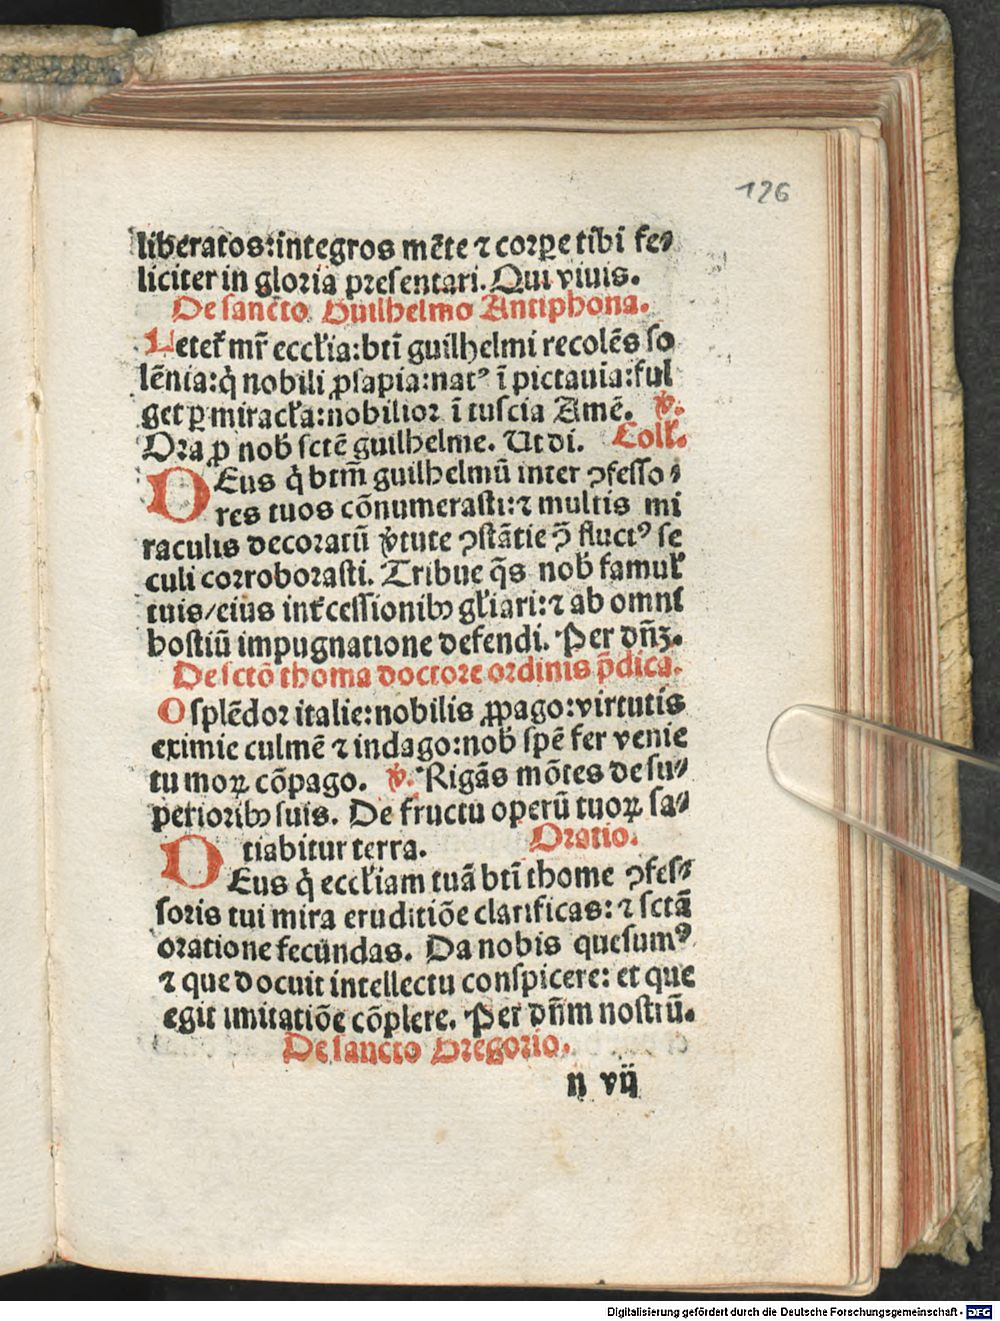 126
liberatos:integros mēte ⁊ corꝑe tibi fe⸗
liciter in gloria presentari. Qui viuis.
De sancto Guilhelmo Antiphona.
Letet᷑ mr̄ ecclīa:btī guilhelmi recolēs so
lēnia:q̇ nobili ꝓsapia:natꝰ ī pictauia:ful
get ꝑ miracl̄a:nobilior ī tuscia Amē. ℣.
Ora ꝓ nob̄ sctē guilhelme. Ut di. Coll̄.
DEus q̇ btm̄ guilhelmū inter ↄfesso⸗
res tuos cōnumerasti:⁊ multis mi
raculis decoratū v̇tute ↄstātie ↄ̄ fluctꝰ se
culi corroborasti. Tribue q̄s nob̄ famul̄
tuis/eius int᷑cessionibꝫ gl̄iari:⁊ ab omni
hostiū impugnatione defendi. Per dn̄ꝫ.
De sctō thoma doctore ordinis p̄dica.
O splēdor italie:nobilis ꝓpago:virtutis
eximie culmē ⁊ indago:nob̄ spē fer venie
tu moꝝ cōpago. ℣. Rigās mōtes de su⸗
perioribꝫ suis. De fructu operū tuoꝝ sa⸗
tiabitur terra. Oratio.
DEus q̇ eccl̄iam tuā btī thome ↄfes⸗
soris tui mira eruditiōe clarificas:⁊ sctā
oratione fecundas. Da nobis quesumꝰ
⁊ que docuit intellectu conspicere: et que
egit imitatiōe cōplere. Per dn̄m nostrū.
De sancto Gregorio.
n vij
Digitalisierung gefördert durch die Deutsche Forschungsgemeinschaft - DFG